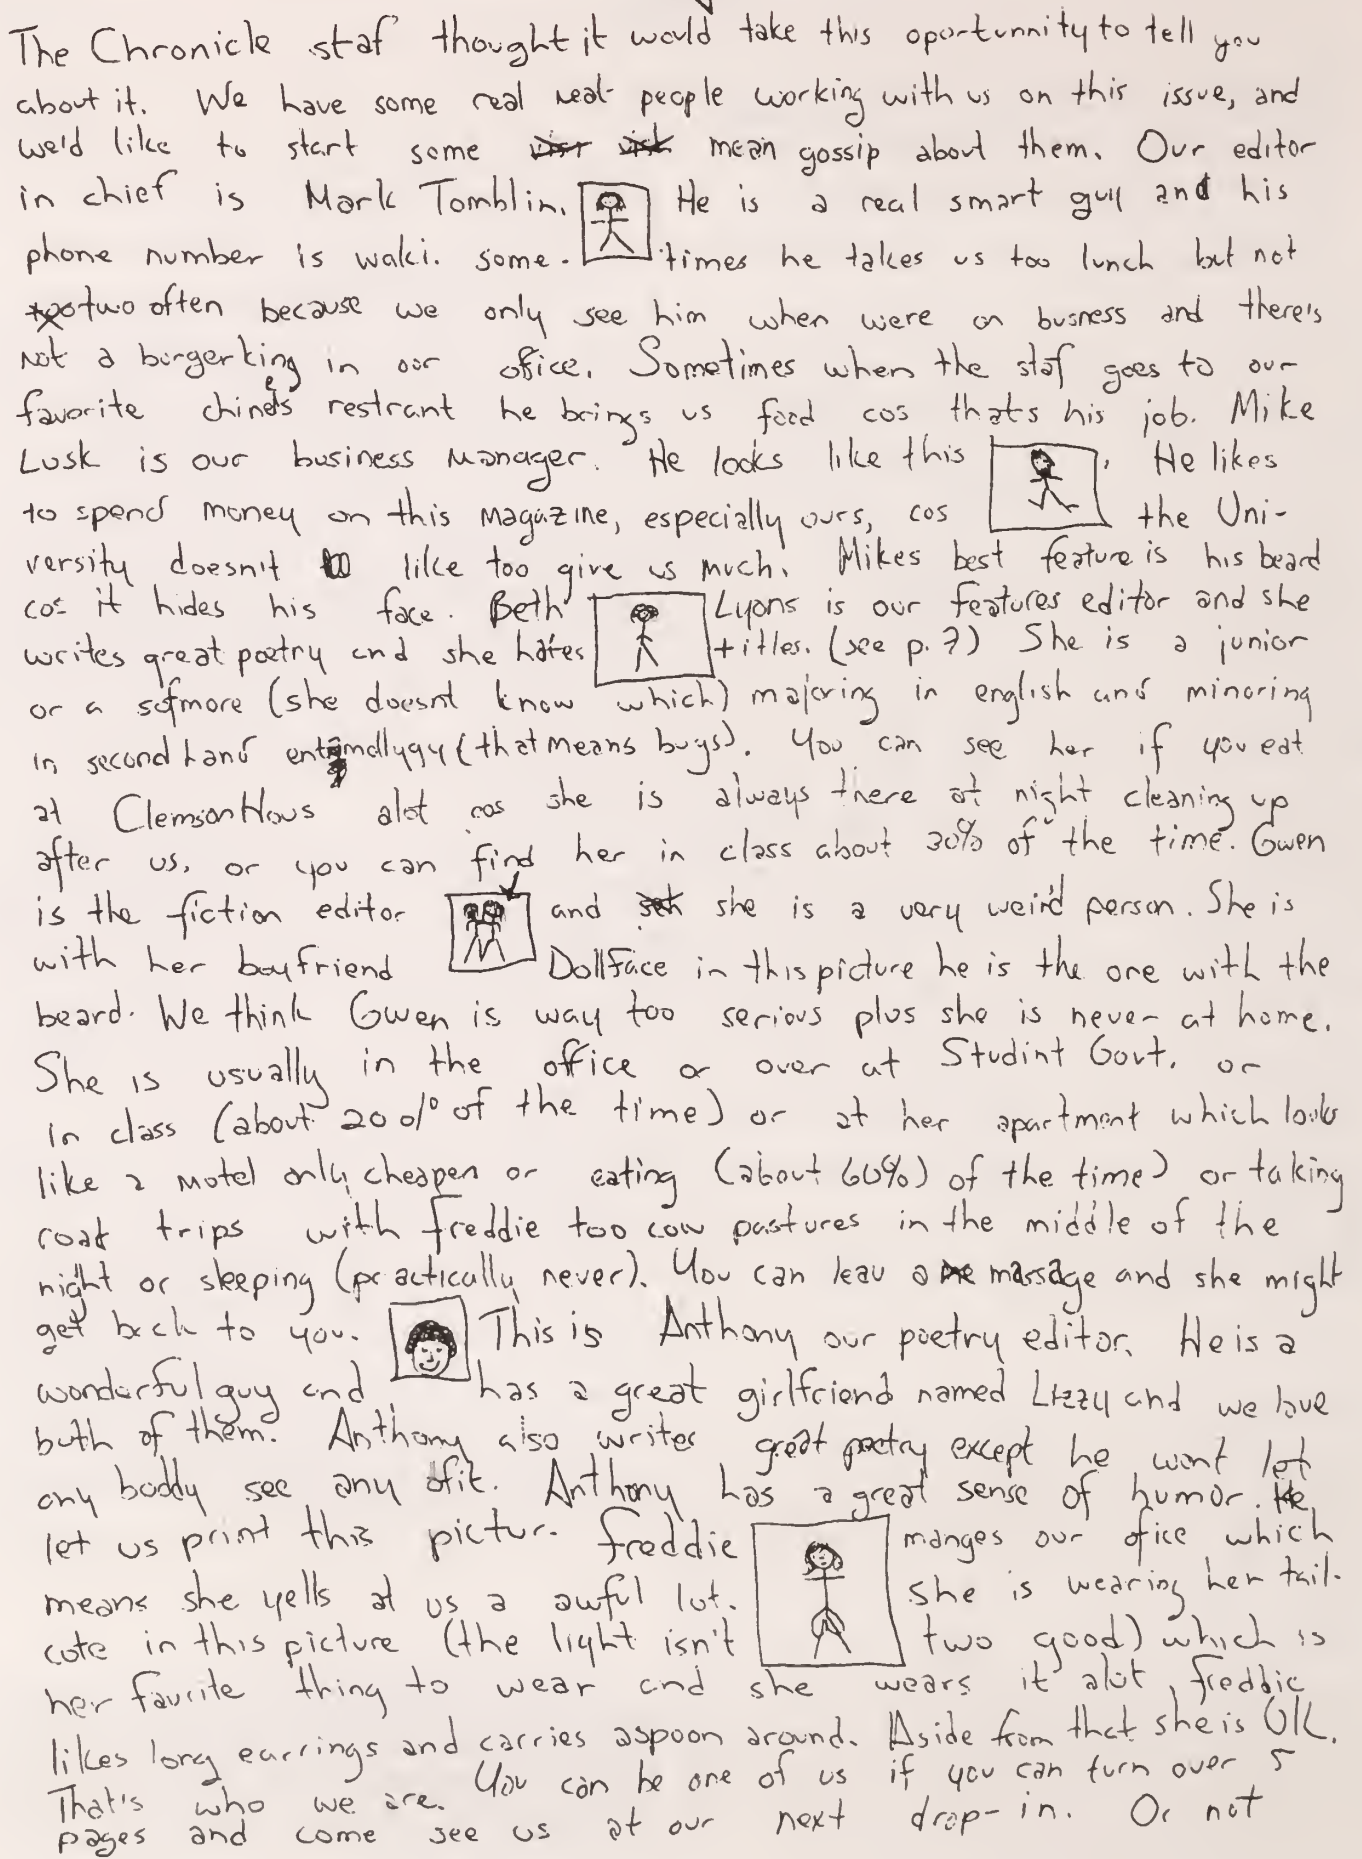 The Chronicle staf thought it would take this oportunnity to tell you
about it. We have some real neat people working with us on this issue, and
we'd like to start some mean gossip about them. Our editor
in chief is Mark Tomblin. He is a real smart guy and his
phone number is waki. some- times he takes us too lunch but not
two often because we only see him when were on busness and there's
not a burger king in our ofice. Sometimes when the staf goes to our
favorite chinees restrant he brings us food cos thats his job. Mike
Lusk is our business manager. He looks like this . He likes
to spend money on this magazine, especially ours, cos the Uni-
versity doesn't like too give us much. Mikes best feature is his beard
cos it hides his face. Beth Lyons is our features editor and she
writes great poetry and she hates titles. (see p. 7) She is a junior
or a sofmore (she doesnt know which) majoring in english and minoring
in second hand (that means bugs). You can see her if you eat
at Clemson Hous alot cos she is always there at night cleaning up
after us, or you can find her in class about 30% of the time. Gwen
is the fiction editor and she is a very weird person. She is
with her boyfriend Dollface in this picture he is the one with the
beard. We think Gwen is way too serious plus she is never at home.
She is usually in the office or over at Studint Govt. or
in class (about 20% of the time) or at her apartment which looks
like a motel only cheaper or eating (about 60%) of the time) or taking
roat trips with freddie too cow pastures in the middle of the
night or sleeping (practically never). You can leav a massage and she might
get back to you. This is Anthony our poetry editor. He is a
wonderful guy and has a great girlfriend named Lizzy and we love
both of them. Anthony also writes great poetry except he wont let
any boddy see any ofit. Anthony has a great sense of humor. He
let us print this pictur. freddie manges our ofice which
means she yells at us a awful lot. she is wearing her tail-
cote in this picture (the light isn't two good) which is
her favrite thing to wear and she wears it alot, freddie
likes long earrings and carries aspoon around. Aside from that she is OK.
That's who we are. You can be one of us if you can turn over 5
pages and come see us at our next drop-in. Or not